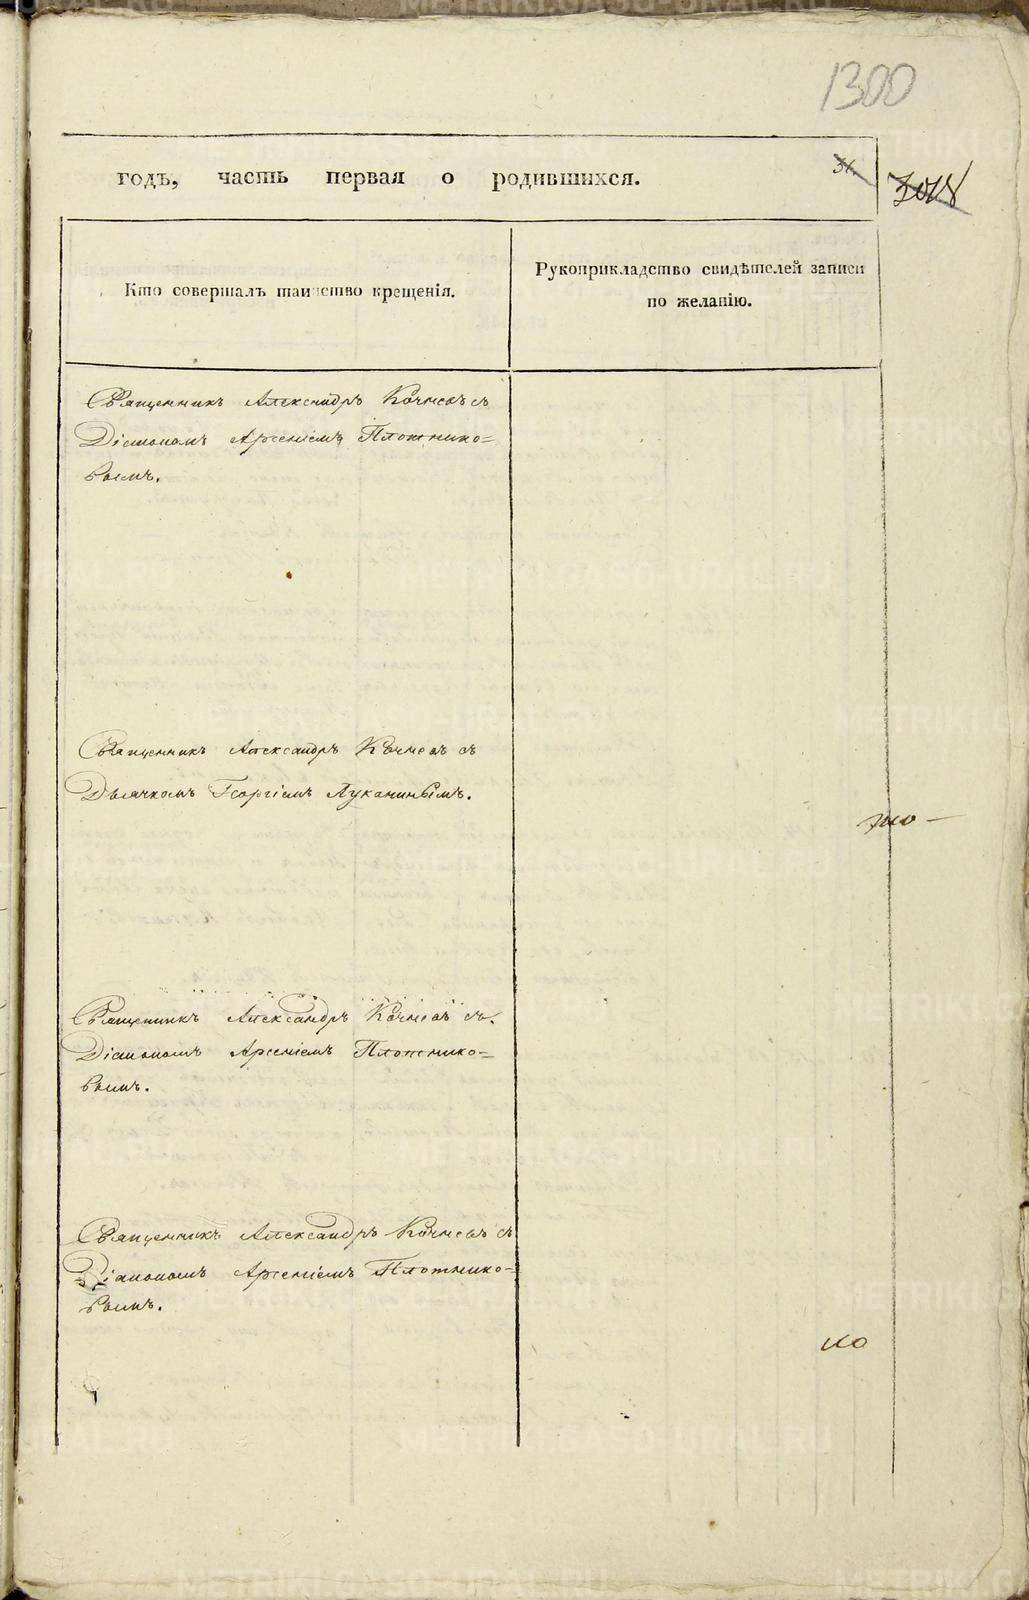 1300
годъ, часть первая о родившихся.
31.
3018
Кто совершалъ таинство крещенія.
Рукоприкладство свидѣтелей записи
по желанію.
Священникъ Александръ Кочневъ съ
Діакономъ Арсеніемъ Плотнико=
вымъ.
Священникъ Александръ Кочневъ съ
Дьячкомъ Георгіемъ Луканинымъ.
Священникъ Александръ Кочневъ съ
Діакономъ Арсеніемъ Плотнико=
вымъ.
Священникъ Александръ Кочневъ съ
Діакономъ Арсеніемъ Плотнико=
вымъ.
METRIKI.GASO-URAL.RU